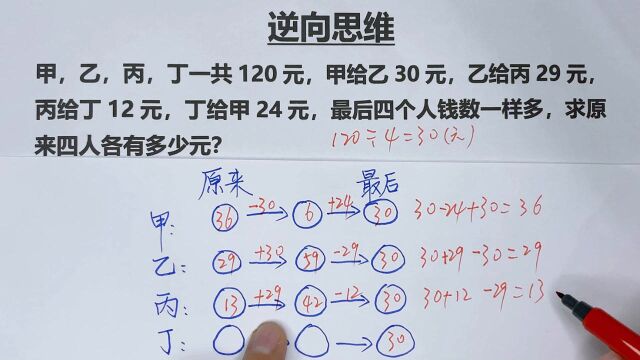 逆向思维
甲，乙，丙，丁一共 120 元，甲给乙 30 元，乙给丙 29 元，
丙给丁 12 元，丁给甲 24 元，最后四个人钱数一样多，求原
来四人各有多少元？
120÷4=30(元)
原来 最后
甲： 36 -30 6 +24 30 30-24+30=36
乙： 29 +30 59 -29 30 30+29-30=29
丙： 13 +29 42 -12 30 30+12-29=13
丁： 30